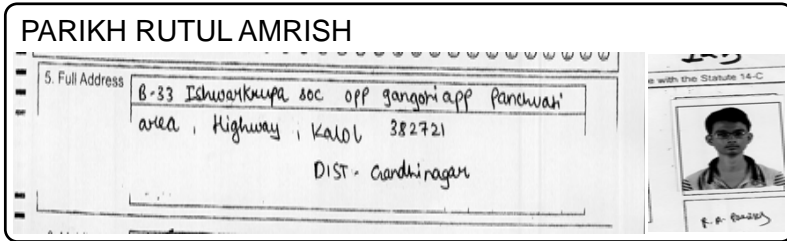 PARIKH RUTUL AMRISH
5. Full Address
B-33 Ishwarkrupa soc opp gangotri app Panchvati
area, Highway, Kalol 382721
DIST - Gandhinagar
e with the Statute 14-C
R. A. Parikh